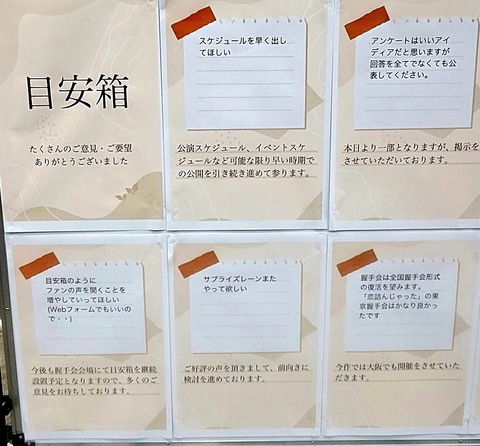 目安箱
たくさんのご意見・ご要望
ありがとうございました
スケジュールを早く出し
てほしい
公演スケジュール、イベントスケ
ジュールなど可能な限り早い時期で
の公開を引き続き進めて参ります。
アンケートはいいアイ
ディアだと思いますが
回答を全てでなくても公
表してください。
本日より一部となりますが、掲示を
させていただいております。
目安箱のように
ファンの声を聞くことを
増やしていってほしい
(Webフォームでもいいの
で・・)
今後も握手会会場にて目安箱を継続
設置予定となりますので、多くのご
意見をお待ちしております。
サプライズレーンまた
やって欲しい
ご好評の声を頂きまして、前向きに
検討を進めております。
握手会は全国握手会形式
の復活を望みます。
「恋詰んじゃった」の東
京握手会はかなり良かっ
たです
今作では大阪でも開催をさせていた
だきます。